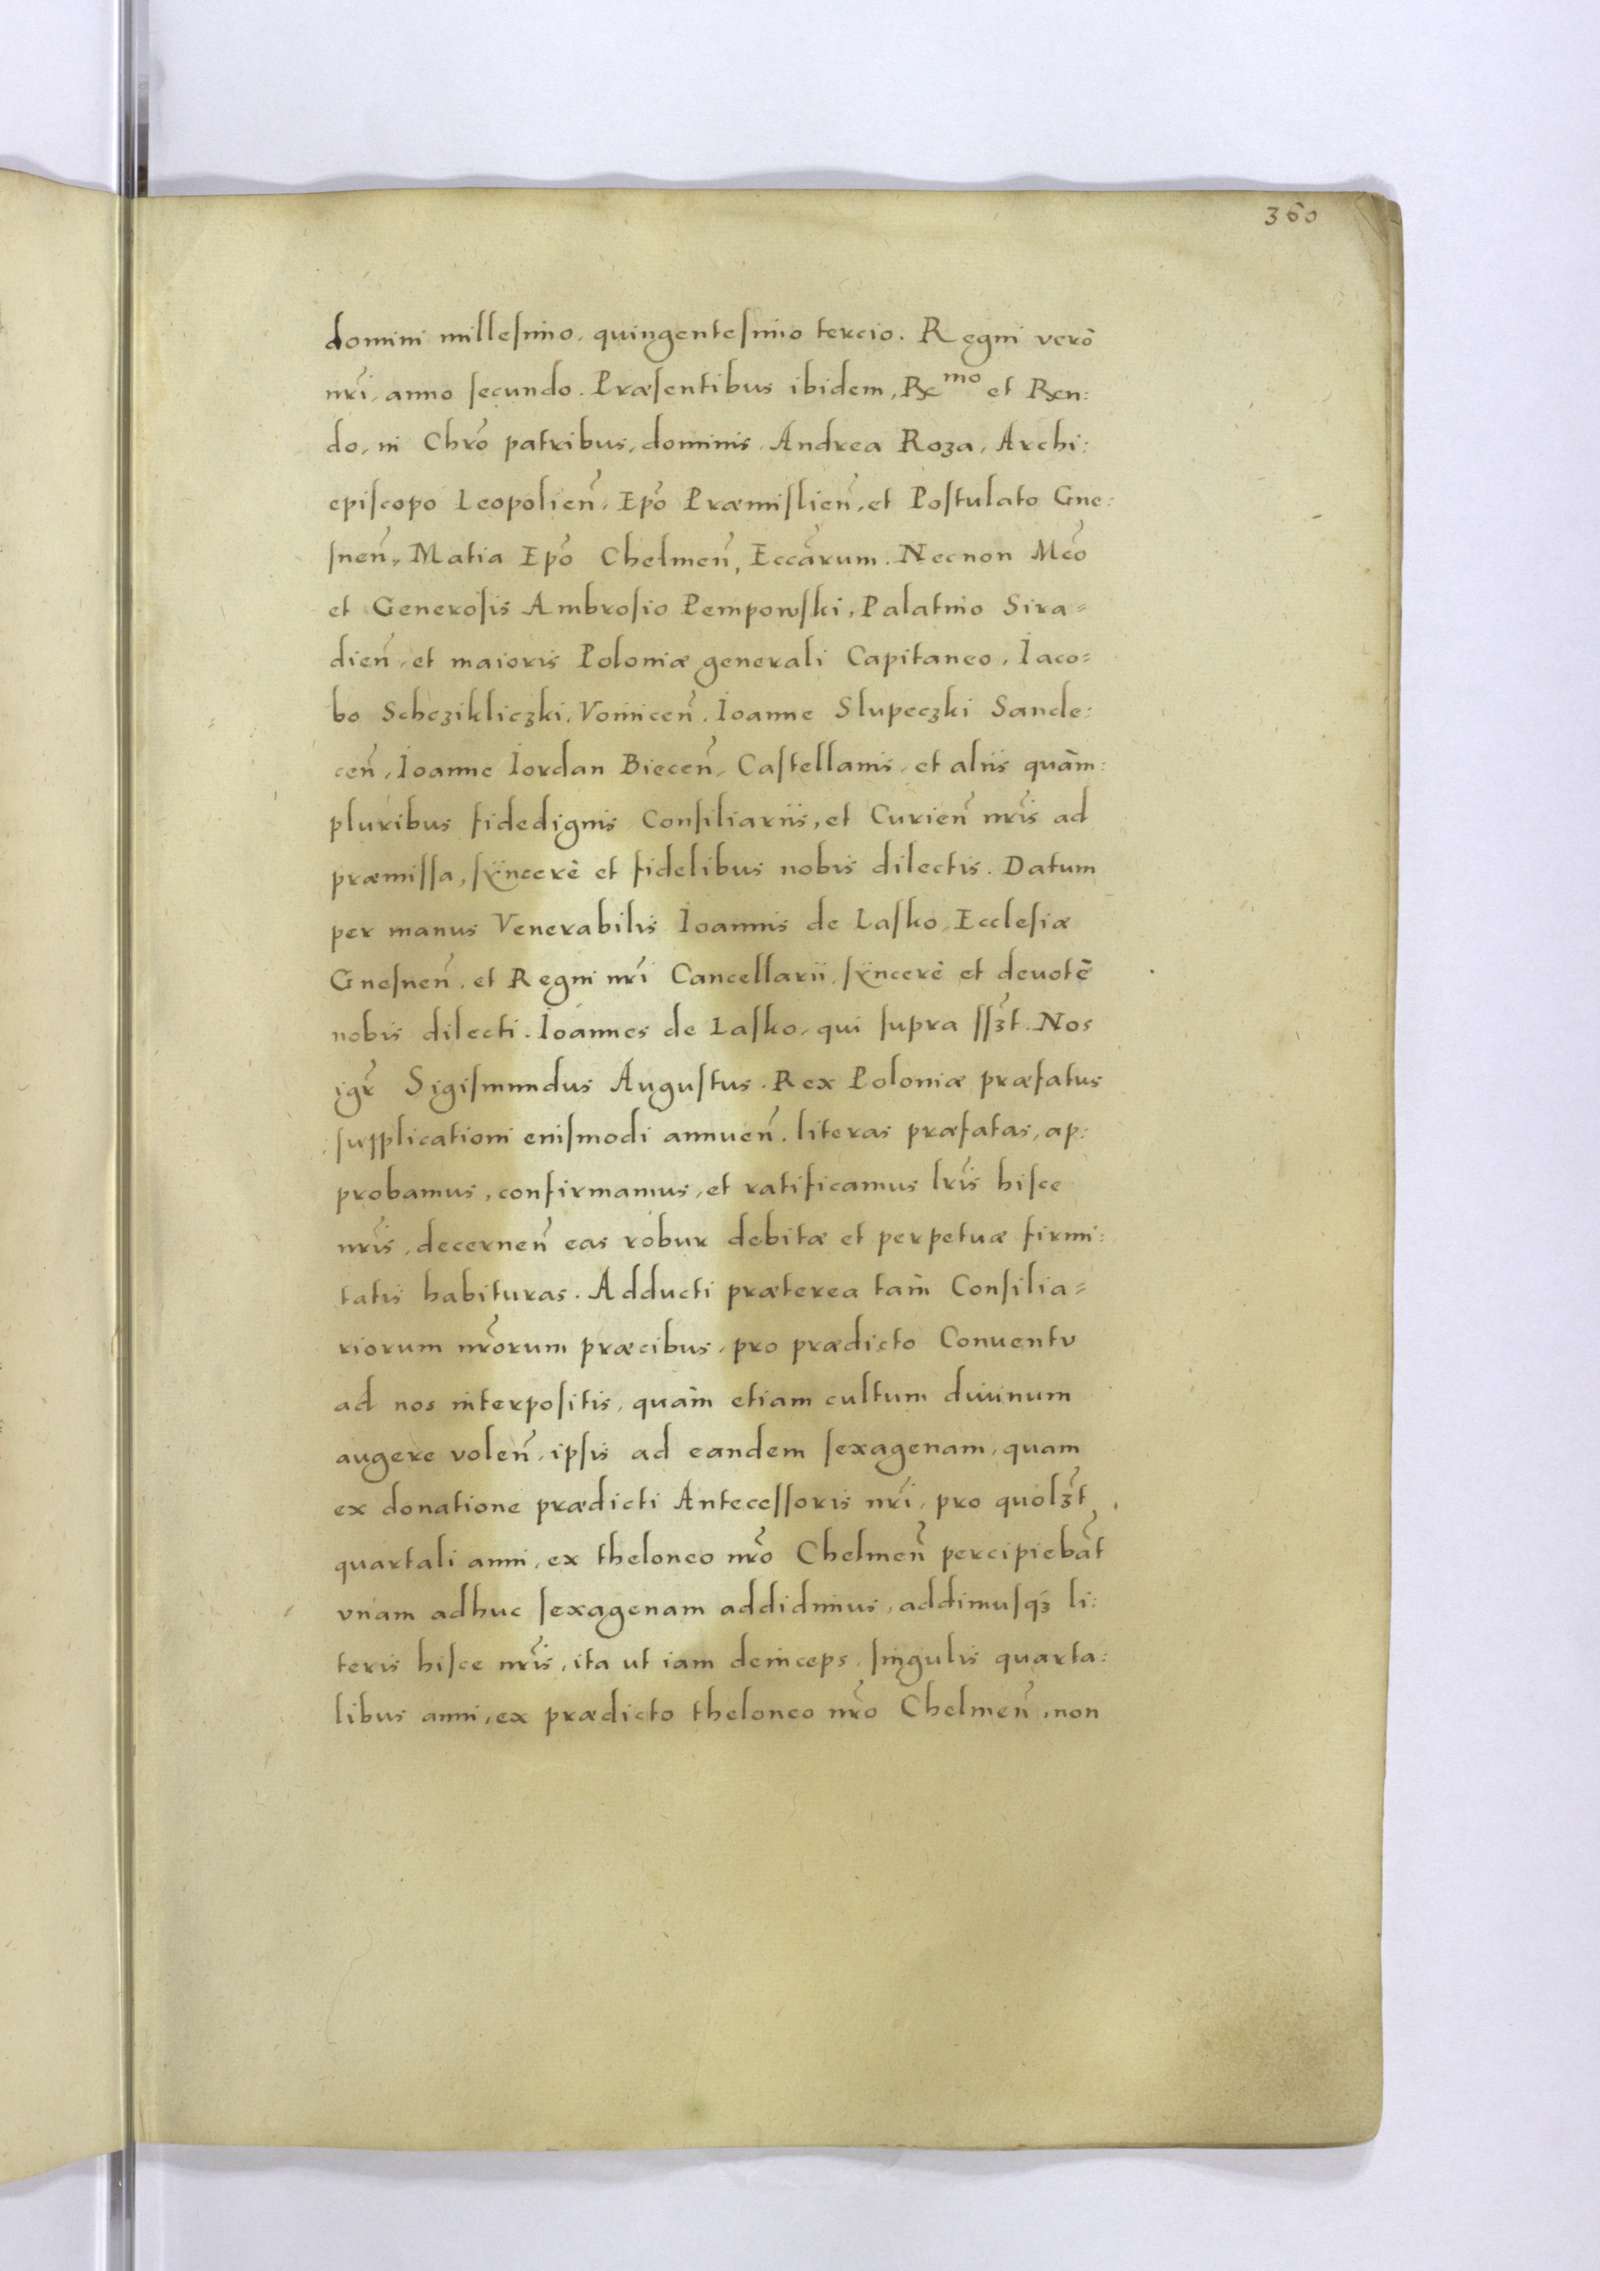 360
domini millesimo, quingentesimo tercio. Regni verò
nr̃i, anno secundo. Præsentibus ibidem, Rx^mo et Rxn:
do, in Chrõ patribus, dominis, Andrea Roza, Archi:
episcopo Leopolieñ, Ep̃o Præmislieñ, et Postulato Gne:
sneñ, Matia Ep̃o Chelmeñ, Eccãrum. Necnon Mc̃o
et Generosis Ambrosio Pempowski, Palatino Sira=
dieñ, et maioris Poloniæ generali Capitaneo, Iaco=
bo Scheziklic̨zki, Voiniceñ, Ioanne Slupeczki Sande:
ceñ, Ioanne Iordan Bieceñ, Castellanis, et aliis quàm:
pluribus fidedignis Consiliariis, et Curieñ nr̃is ad
præmissa, sÿncerè et fidelibus nobis dilectis. Datum
per manus Venerabilis Ioannis de Lasko, Ecclesiæ
Gnesneñ, et Regni nr̃i Cancellarii, sÿncerè et deuotè
nobis dilecti. Ioannes de Lasko, qui supra ssʒ̃t. Nos
igr̃ Sigismundus Augustus. Rex Poloniæ præfatus
supplicationi eiusmodi annueñ. literas præfatas, ap:
probamus, confirmamus, et ratificamus lr̃is hisce
nr̃is, decerneñ eas robur debitæ et perpetuæ firmi:
tatis habituras. Adducti præterea tam̀ Consilia=
riorum nr̃orum præcibus, pro prædicto Conuentu
ad nos interpositis, quàm etiam cultum diuinum
augere voleñ, ipsis ad eandem sexagenam, quam
ex donatione prædicti Antecessoris nr̃i, pro quolʒ̃t
quartali anni, ex theloneo nr̃o Chelmeñ percipiebãt
vnam adhuc sexagenam addidimus, addimusqʒ li:
teris hisce nr̃is, ita ut iam deinceps, singulis quarta:
libus anni, ex prædicto theloneo nr̃o Chelmeñ, non